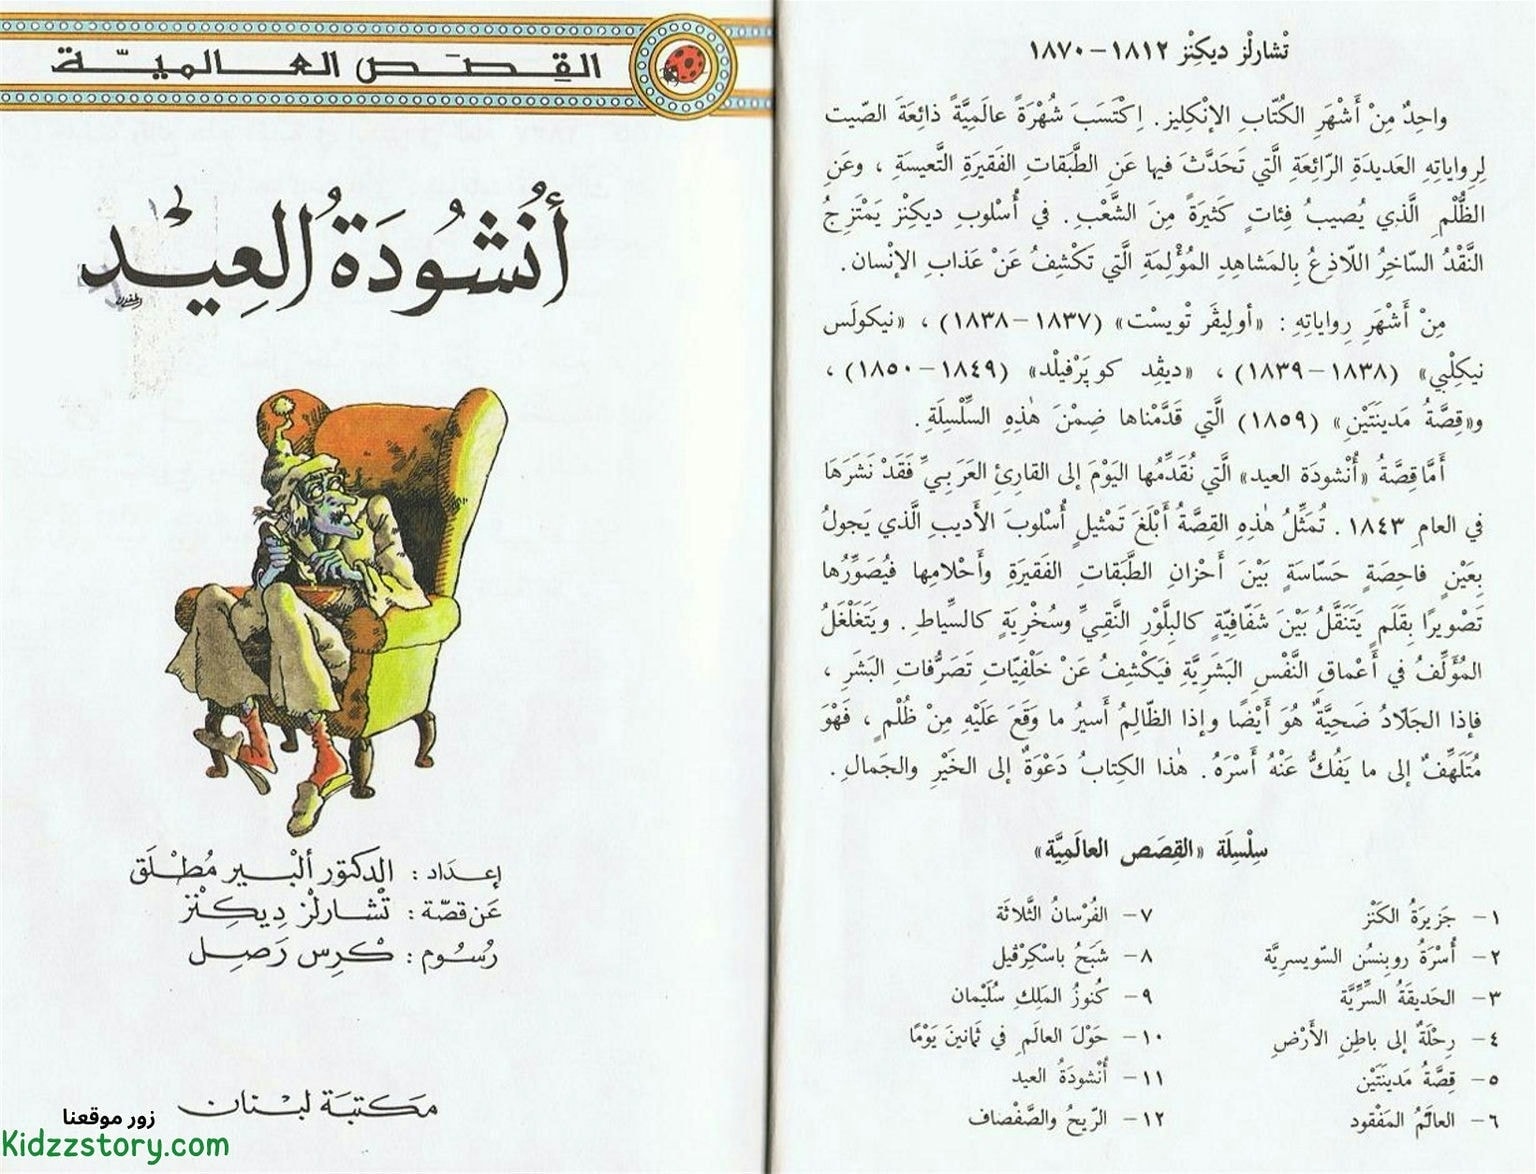 القصص العالميّة
أُنْشُودَةُ العِيد
إعداد : الدكتور ألبير مُطْلَق
عَن قصّة : تْشارلْز دِيكِنْز
رُسُوم : كْرِس رَصِل
مَكتبَة لبْنان
زور موقعنا
Kidzzstory.com
تْشارلْز ديكِنْز ١٨١٢ – ١٨٧٠
واحِدٌ مِنْ أَشْهَرِ الكُتّابِ الإنْكِليز. اِكْتَسَبَ شُهْرَةً عالَمِيَّةً ذائِعَةَ الصّيت
لِرِواياتِهِ العَديدَةِ الرّائِعَةِ الَّتي تَحَدَّثَ فيها عَنِ الطَّبَقاتِ الفَقيرَةِ التَّعيسَةِ ، وعَنِ
الظُّلْمِ الَّذي يُصيبُ فِئاتٍ كَثيرَةً مِنَ الشَّعْبِ. في أُسْلوبِ ديكِنْز يَمْتَزِجُ
النَّقْدُ السّاخِرُ اللّاذِعُ بِالمَشاهِدِ المُؤْلِمَةِ الَّتي تَكْشِفُ عَنْ عَذابِ الإنْسان.
مِنْ أَشْهَرِ رِواياتِهِ : «أوليڤَر تْويسْت» (١٨٣٧ – ١٨٣٨) ، «نيكولَس
نيكِلْبي» (١٨٣٨ – ١٨٣٩) ، «ديڤِد كوپَرْفيلْد» (١٨٤٩ – ١٨٥٠) ،
و«قِصَّةُ مَدينَتَيْنِ» (١٨٥٩) الَّتي قَدَّمْناها ضِمْنَ هٰذِهِ السِّلْسِلَةِ.
أَمّا قِصَّةُ «أُنْشودَة العيد» الَّتي نُقَدِّمُها اليَوْمَ إلى القارِئِ العَرَبِيِّ فَقَدْ نَشَرَها
في العامِ ١٨٤٣. تُمَثِّلُ هٰذِهِ القِصَّةُ أَبْلَغَ تَمْثيلٍ أُسْلوبَ الأَديبِ الَّذي يَجولُ
بِعَيْنٍ فاحِصَةٍ حَسّاسَةٍ بَيْنَ أَحْزانِ الطَّبَقاتِ الفَقيرَةِ وأَحْلامِها فَيُصَوِّرُها
تَصْويرًا بِقَلَمٍ يَتَنَقَّلُ بَيْنَ شَفّافِيَّةٍ كالبِلَّوْرِ النَّقِيِّ وسُخْرِيَةٍ كالسِّياطِ. ويَتَغَلْغَلُ
المُؤَلِّفُ في أَعْماقِ النَّفْسِ البَشَرِيَّةِ فَيَكْشِفُ عَنْ خَلْفِيّاتِ تَصَرُّفاتِ البَشَرِ ،
فإذا الجَلّادُ ضَحِيَّةٌ هُوَ أَيْضًا وإذا الظّالِمُ أَسيرُ ما وَقَعَ عَلَيْهِ مِنْ ظُلْمٍ ، فَهْوَ
مُتَلَهِّفٌ إلى ما يَفُكُّ عَنْهُ أَسْرَهُ. هٰذا الكِتابُ دَعْوَةٌ إلى الخَيْرِ والجَمالِ.
سِلْسِلَة «القِصَص العالَمِيَّة»
١– جَزيرَةُ الكَنْز
٢– أُسْرَةُ روبِنسُن السّويسرِيَّة
٣– الحَديقَةُ السِّرِّيَّة
٤– رِحْلَةٌ إلى باطِنِ الأَرْضِ
٥– قِصَّةُ مَدينَتَيْن
٦– العالَمُ المَفْقود
٧– الفُرْسانُ الثَّلاثَة
٨– شَبَحُ باسْكِرْڤيل
٩– كُنوزُ المَلِكِ سُلَيْمان
١٠– حَوْلَ العالَمِ في ثَمانينَ يَوْمًا
١١– أُنْشودَةُ العيد
١٢– الرّيحُ والصَّفْصاف